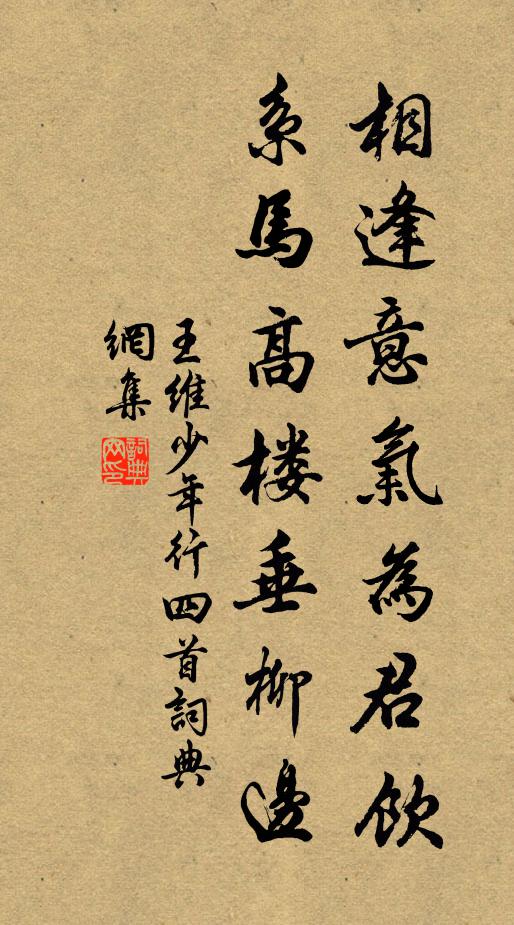 相逢意氣為君飲
系馬高楼垂柳邊
王維少年行四首詞典
網集
詞典
网印